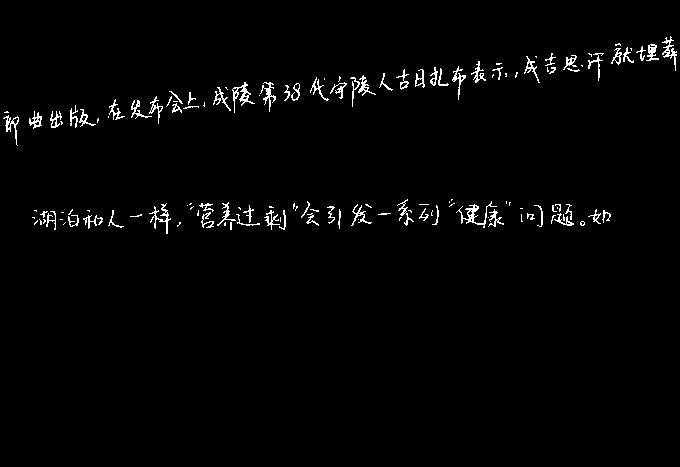 部曲出版,在发布会上,成陵第38代守陵人古日扎布表示,成吉思汗就埋葬
湖泊和人一样,“营养过剩”会引发一系列“健康”问题。如